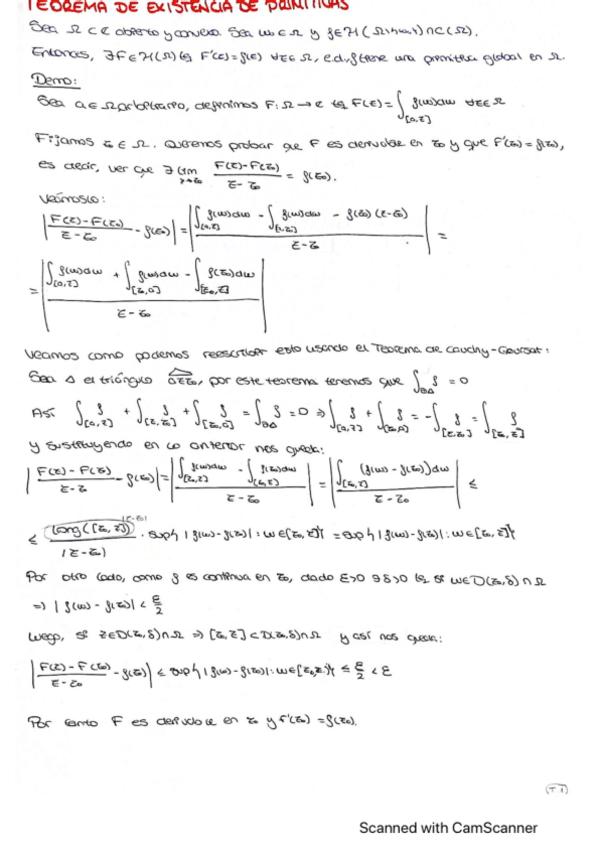 TEOREMA DE EXISTENCIA DE PRIMITIVAS
Sea Ω ⊂ ℂ abierto y convexo. Sea w₀ ∈ Ω y f ∈ H(Ω\{w₀}) ∩ C(Ω).
Entonces, ∃F ∈ H(Ω) tq F'(z) = f(z) ∀z ∈ Ω, e.d, f tiene una primitiva global en Ω.
Demo:
Sea a ∈ Ω arbitrario, definimos F: Ω → ℂ tq F(z) = ∫_[a,z] f(w)dw ∀z ∈ Ω
Fijamos z₀ ∈ Ω. Queremos probar que F es derivable en z₀ y que F'(z₀) = f(z₀),
es decir, ver que ∃ lim_{z→z₀} (F(z) - F(z₀))/(z - z₀) = f(z₀).
Veámoslo:
|(F(z) - F(z₀))/(z - z₀) - f(z₀)| = |(∫_[a,z] f(w)dw - ∫_[a,z₀] f(w)dw - f(z₀)(z - z₀))/(z - z₀)| =
= |(∫_[a,z] f(w)dw + ∫_[z₀,a] f(w)dw - ∫_[z₀,z] f(z₀)dw)/(z - z₀)|
Veamos como podemos reescribir esto usando el Teorema de Cauchy-Goursat:
Sea Δ el triángulo azz₀, por este teorema tenemos que ∫_∂Δ f = 0
Así ∫_[a,z] f + ∫_[z,z₀] f + ∫_[z₀,a] f = ∫_∂Δ f = 0 ⇒ ∫_[a,z] f + ∫_[z₀,a] f = -∫_[z,z₀] f = ∫_[z₀,z] f
y sustituyendo en lo anterior nos queda:
|(F(z) - F(z₀))/(z - z₀) - f(z₀)| = |(∫_[z₀,z] f(w)dw - ∫_[z₀,z] f(z₀)dw)/(z - z₀)| = |(∫_[z₀,z] (f(w) - f(z₀))dw)/(z - z₀)| ≤
|z-z₀|
≤ long([z₀,z])/|z - z₀| · sup{|f(w) - f(z₀)| : w ∈ [z₀,z]} = sup{|f(w) - f(z₀)| : w ∈ [z₀,z]}
Por otro lado, como f es continua en z₀, dado ε>0 ∃δ>0 tq si w ∈ D(z₀,δ) ∩ Ω
⇒ |f(w) - f(z₀)| < ε/2
Luego, si z ∈ D(z₀,δ) ∩ Ω ⇒ [z₀,z] ⊂ D(z₀,δ) ∩ Ω y así nos queda:
|(F(z) - F(z₀))/(z - z₀) - f(z₀)| ≤ sup{|f(w) - f(z₀)| : w ∈ [z₀,z]} ≤ ε/2 < ε
Por tanto F es derivable en z₀ y F'(z₀) = f(z₀).
(T 1)
Scanned with CamScanner